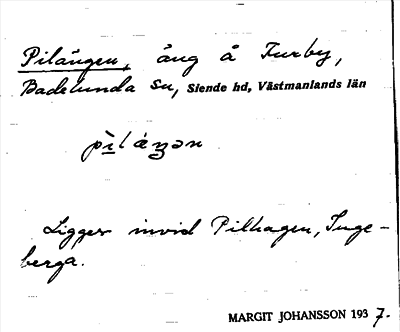 Pilängen, äng å Furby,
Badelunda sn, Siende hd, Västmanlands län
pìláŋən
Ligger invid Pilhagen, Inge-
berga.
MARGIT JOHANSSON 1937.